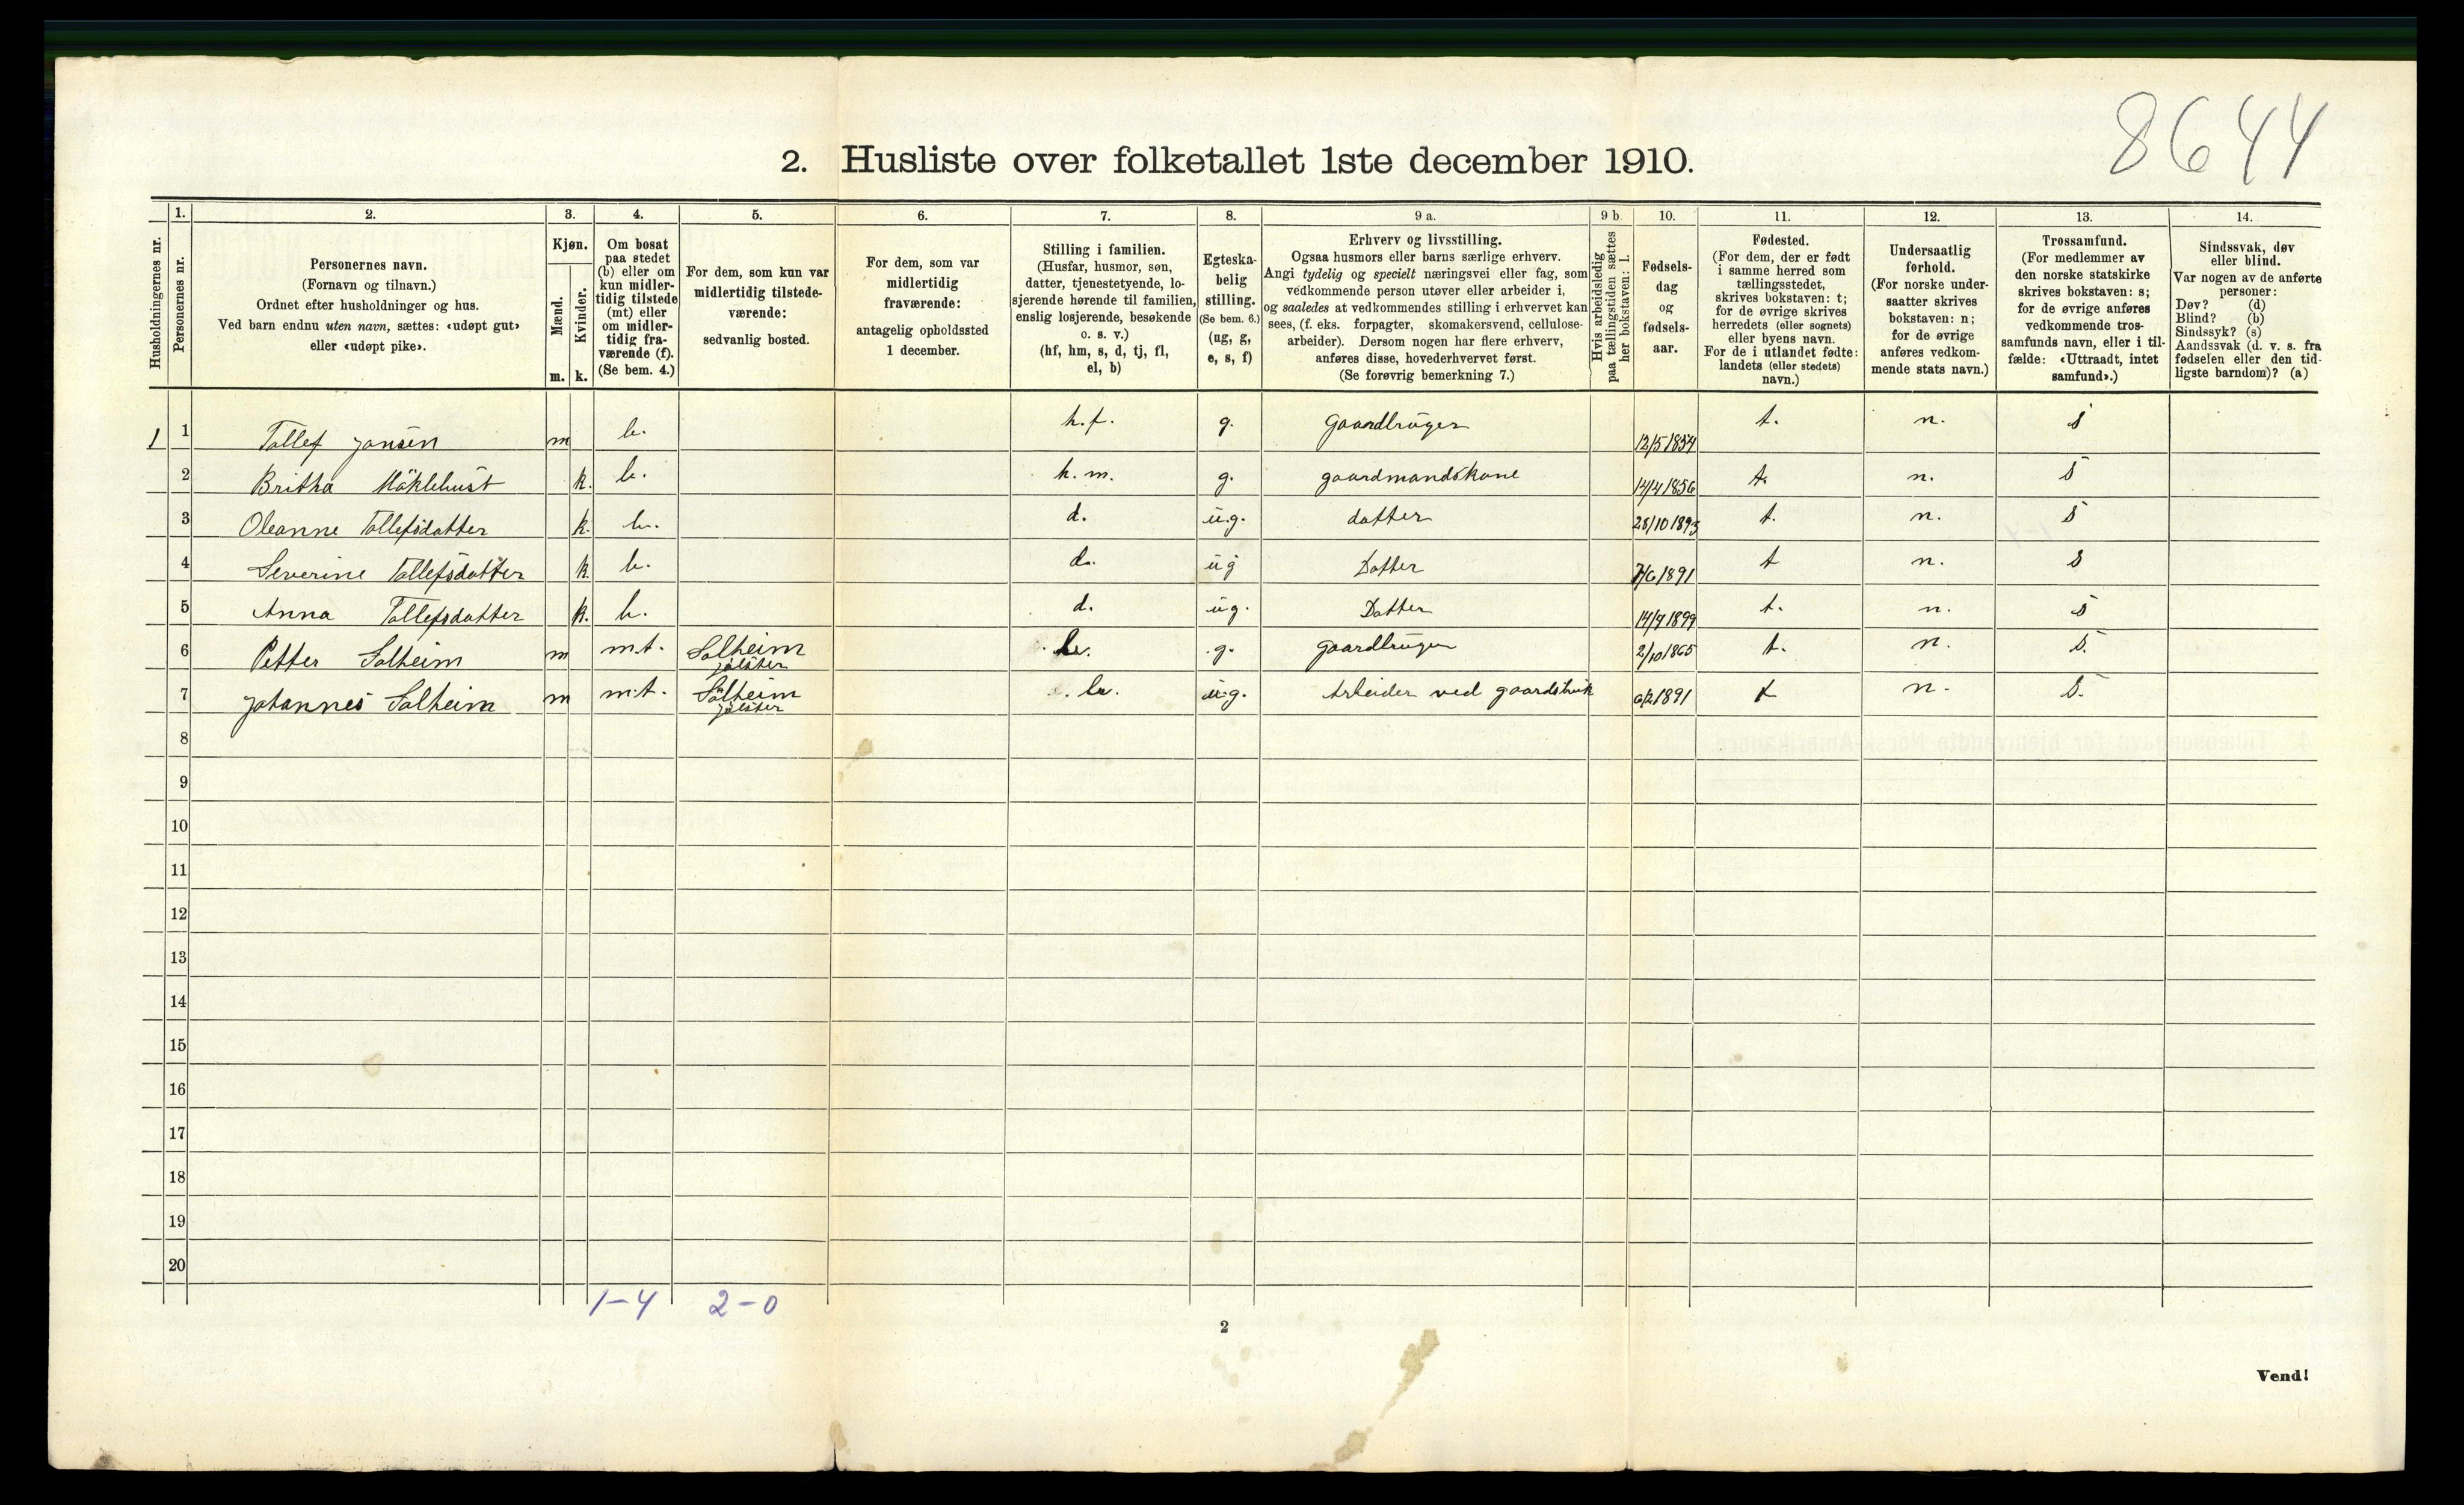 8644
2. Husliste over folketallet 1ste december 1910.
Husholdningernes nr.
1.
Personernes nr.
2.
Personernes navn.
(Fornavn og tilnavn.)
Ordnet efter husholdninger og hus.
Ved barn endnu uten navn, sættes: «udøpt gut»
eller «udøpt pike».
3.
Kjøn.
Mænd.
Kvinder.
m. k.
4.
Om bosat
paa stedet
(b) eller om
kun midler-
tidig tilstede
(mt) eller
om midler-
tidig fra-
værende (f).
(Se bem. 4.)
5.
For dem, som kun var
midlertidig tilstede-
værende:
sedvanlig bosted.
6.
For dem, som var
midlertidig
fraværende:
antagelig opholdssted
1 december.
7.
Stilling i familien.
(Husfar, husmor, søn,
datter, tjenestetyende, lo-
sjerende hørende til familien,
enslig losjerende, besøkende
o. s. v.)
(hf, hm, s, d, tj, fl,
el, b)
8.
Egteska-
belig
stilling.
(Se bem. 6.)
(ug, g,
e, s, f)
9 a.
Erhverv og livsstilling.
Ogsaa husmors eller barns særlige erhverv.
Angi tydelig og specielt næringsvei eller fag, som
vedkommende person utøver eller arbeider i,
og saaledes at vedkommendes stilling i erhvervet kan
sees, (f. eks. forpagter, skomakersvend, cellulose-
arbeider). Dersom nogen har flere erhverv,
anføres disse, hovederhvervet først.
(Se forøvrig bemerkning 7.)
9 b.
Hvis arbeidsledig
paa tællingstiden sættes
her bokstaven: l.
10.
Fødsels-
dag
og
fødsels-
aar.
11.
Fødested.
(For dem, der er født
i samme herred som
tællingsstedet,
skrives bokstaven: t;
for de øvrige skrives
herredets (eller sognets)
eller byens navn.
For de i utlandet fødte:
landets (eller stedets)
navn.)
12.
Undersaatlig
forhold.
(For norske under-
saatter skrives
bokstaven: n;
for de øvrige
anføres vedkom-
mende stats navn.)
13.
Trossamfund.
(For medlemmer av
den norske statskirke
skrives bokstaven: s;
for de øvrige anføres
vedkommende tros-
samfunds navn, eller i til-
fælde: «Uttraadt, intet
samfund».)
14.
Sindssvak, døv
eller blind.
Var nogen av de anførte
personer:
Døv? (d)
Blind? (b)
Sindssyk? (s)
Aandssvak (d. v. s. fra
fødselen eller den tid-
ligste barndom)? (a)
1 1 Tollef Jansen m b. h.f. g. Gaardbruger 12/5 1854 t. n. s
2 Britha k. b. h.m. g. gaardmandskone 14/4 1856 t. n. s
3 Oleanne Tollefsdatter k. b. d. u.g. datter 28/10 1893 t. n. s
4 Severine Tollefsdatter k. b. d. ug Datter 7/6 1891 t n. s
5 Anna Tollefsdatter k. b. d. ug. Datter 1899 t. n. s
6 Petter Solheim m m.t. Solheim Jølster b. g. gaardbruger 2/10 1865 t. n. s.
7 Johannes Solheim m m.t. Solheim Jølster b. u.g. Arbeider ved gaardsbruk 6/2 1891 t n. s.
8
9
10
11
12
13
14
15
16
17
18
19
20
1-4 2-0
2
Vend!